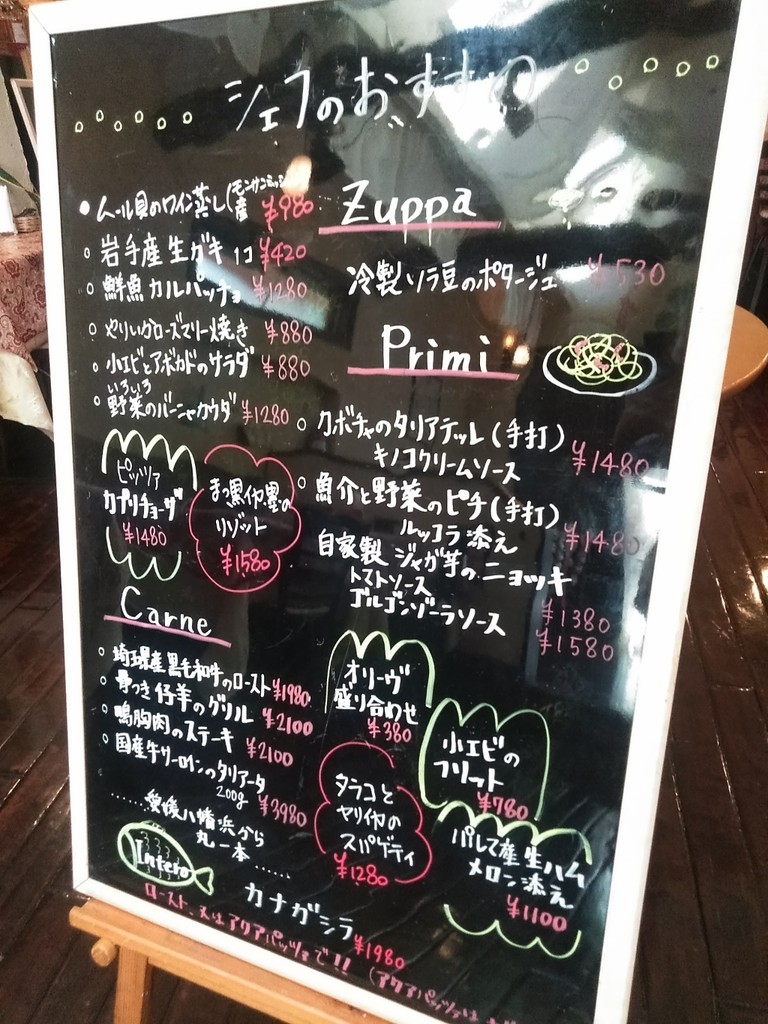 シェフのおすすめ
ムール貝のワイン蒸し(モンサンミッシェル産 ¥980
岩手産生ガキ 1コ ¥420
鮮魚カルパッチョ ¥1280
やりいかローズマリー焼き ¥880
小エビとアボカドのサラダ ¥880
いろいろ
野菜のバーニャカウダ ¥1280
ピッツァ
カプリチョーザ
¥1480
まっ黒イカ墨の
リゾット
¥1580
Carne
埼玉県産黒毛和牛のロースト ¥1980
骨つき仔羊のグリル ¥2100
鴨胸肉のステーキ ¥2100
国産牛サーロインのタリアータ
200g ¥3980
愛媛八幡浜から
丸一本
Intero
カナガシラ ¥1980
ロースト、又はアクアパッツァで!! (アクアパッツァは
Zuppa
冷製ソラ豆のポタージュ ¥530
Primi
カボチャのタリアテッレ(手打)
キノコクリームソース ¥1480
魚介と野菜のピチ(手打)
ルッコラ添え ¥1480
自家製 ジャガ芋のニョッキ
トマトソース ¥1380
ゴルゴンゾーラソース ¥1580
オリーヴ
盛り合わせ
¥380
小エビの
フリット
¥780
タラコと
ヤリイカの
スパゲティ
¥1280
パルマ産生ハム
メロン添え
¥1100